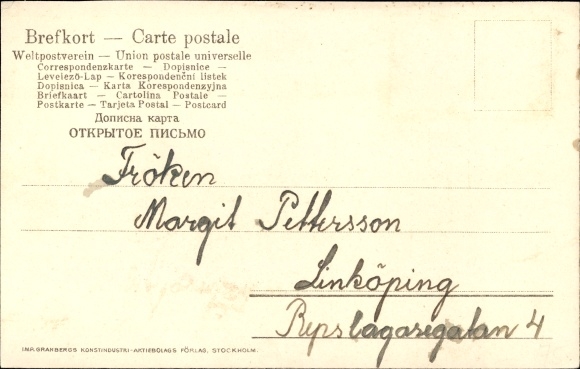 Brefkort — Carte postale
Weltpostverein — Union postale universelle
Correspondenzkarte — Dopisnice —
Levelező-Lap — Korespondenční listek
Dopisnica — Karta Korespondenzyjna
Briefkaart — Cartolina Postale —
Postkarte — Tarjeta Postal — Postcard
Дописна карта
ОТКРЫТОЕ ПИСЬМО
Fröken
Margit Pettersson
Linköping
Repslagaregatan 4
IMP. GRANBERGS KONSTINDUSTRI-AKTIEBOLAGS FÖRLAG, STOCKHOLM.